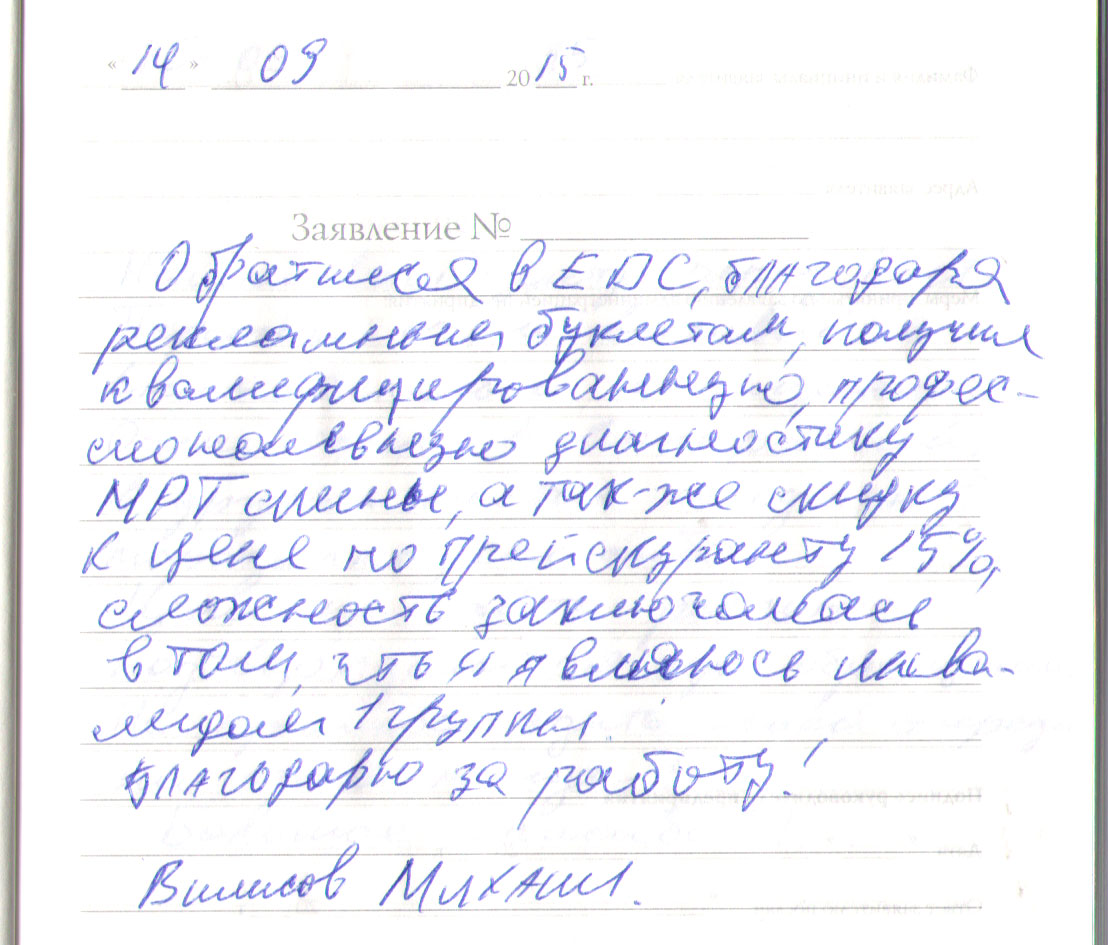 « 14 » 09 2015 г.
Заявление №
Обратился в ЕДС, благодаря
рекламным буклетам, получил
квалифицированную, профес-
сиональную диагностику
МРТ спины, а так-же скидку
к цене по прейскуранту 15%,
сложность заключалась
в том, что я являюсь инва-
лидом 1 группы.
Благодарю за работу!
Михаил.